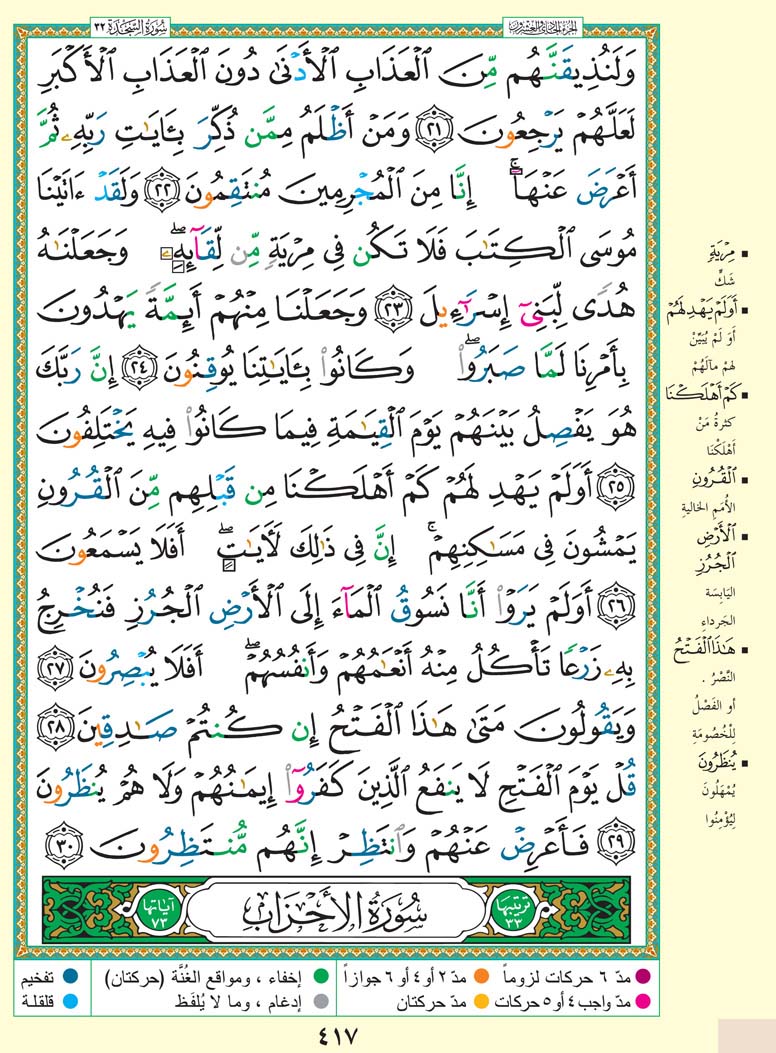 سُورَةُ السَّجْدَةِ ٣٢
الجزء الحادي والعشرون
وَلَنُذِيقَنَّهُم مِّنَ الْعَذَابِ الْأَدْنَىٰ دُونَ الْعَذَابِ الْأَكْبَرِ
لَعَلَّهُمْ يَرْجِعُونَ ٢١ وَمَنْ أَظْلَمُ مِمَّن ذُكِّرَ بِـَٔايَـٰتِ رَبِّهِۦ ثُمَّ
أَعْرَضَ عَنْهَآ ۚ إِنَّا مِنَ الْمُجْرِمِينَ مُنتَقِمُونَ ٢٢ وَلَقَدْ ءَاتَيْنَا
مُوسَى الْكِتَـٰبَ فَلَا تَكُن فِى مِرْيَةٍ مِّن لِّقَآئِهِۦ ۖ وَجَعَلْنَـٰهُ
هُدًى لِّبَنِىٓ إِسْرَٰٓءِيلَ ٢٣ وَجَعَلْنَا مِنْهُمْ أَئِمَّةً يَهْدُونَ
بِأَمْرِنَا لَمَّا صَبَرُوا۟ ۖ وَكَانُوا۟ بِـَٔايَـٰتِنَا يُوقِنُونَ ٢٤ إِنَّ رَبَّكَ
هُوَ يَفْصِلُ بَيْنَهُمْ يَوْمَ الْقِيَـٰمَةِ فِيمَا كَانُوا۟ فِيهِ يَخْتَلِفُونَ
٢٥ أَوَلَمْ يَهْدِ لَهُمْ كَمْ أَهْلَكْنَا مِن قَبْلِهِم مِّنَ الْقُرُونِ
يَمْشُونَ فِى مَسَـٰكِنِهِمْ ۚ إِنَّ فِى ذَٰلِكَ لَـَٔايَـٰتٍ ۖ أَفَلَا يَسْمَعُونَ
٢٦ أَوَلَمْ يَرَوْا۟ أَنَّا نَسُوقُ الْمَآءَ إِلَى الْأَرْضِ الْجُرُزِ فَنُخْرِجُ
بِهِۦ زَرْعًا تَأْكُلُ مِنْهُ أَنْعَـٰمُهُمْ وَأَنفُسُهُمْ ۖ أَفَلَا يُبْصِرُونَ ٢٧
وَيَقُولُونَ مَتَىٰ هَـٰذَا الْفَتْحُ إِن كُنتُمْ صَـٰدِقِينَ ٢٨
قُلْ يَوْمَ الْفَتْحِ لَا يَنفَعُ الَّذِينَ كَفَرُوٓا۟ إِيمَـٰنُهُمْ وَلَا هُمْ يُنظَرُونَ
٢٩ فَأَعْرِضْ عَنْهُمْ وَانتَظِرْ إِنَّهُم مُّنتَظِرُونَ ٣٠
ترتيبها ٣٣
سُورَةُ الْأَحْزَابِ
آياتها ٧٣
مِرْيَةٍ
شَكٍّ
أَوَلَمْ يَهْدِ لَهُمْ
أَوَ لَمْ يُبَيِّنْ
لهُمْ مَآلَهُمْ
كَمْ أَهْلَكْنَا
كَثْرَةُ مَنْ
أَهْلَكْنَا
الْقُرُونِ
الأُمَمِ الخالِيةِ
الْأَرْضِ
الْجُرُزِ
اليَابِسَة
الجَرداءِ
هَـٰذَا الْفَتْحُ
النَّصْرُ .
أو الفَصْلُ
لِلْخُصُومَةِ
يُنظَرُونَ
يُمْهَلُونَ
لِيُؤْمِنُوا
مدّ ٦ حركات لزوماً
مدّ ٢ أو ٤ أو ٦ جوازاً
إخفاء ، ومواقع الغُنَّة (حركتان)
تفخيم
مدّ واجب ٤ أو ٥ حركات
مدّ حركتان
إدغام ، وما لا يُلفَظ
قلقلة
٤١٧